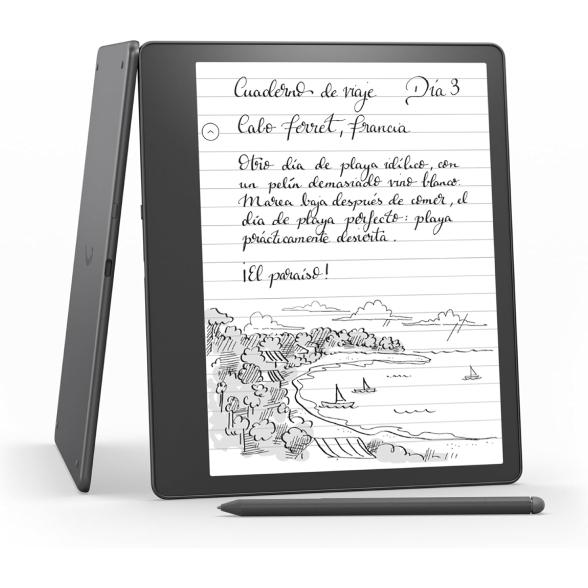 Cuaderno de viaje Día 3
Cabo Ferret, Francia
Otro día de playa idílico, con
un pelín demasiado vino blanco.
Marea baja después de comer, el
día de playa perfecto: playa
prácticamente desierta.
¡El paraíso!